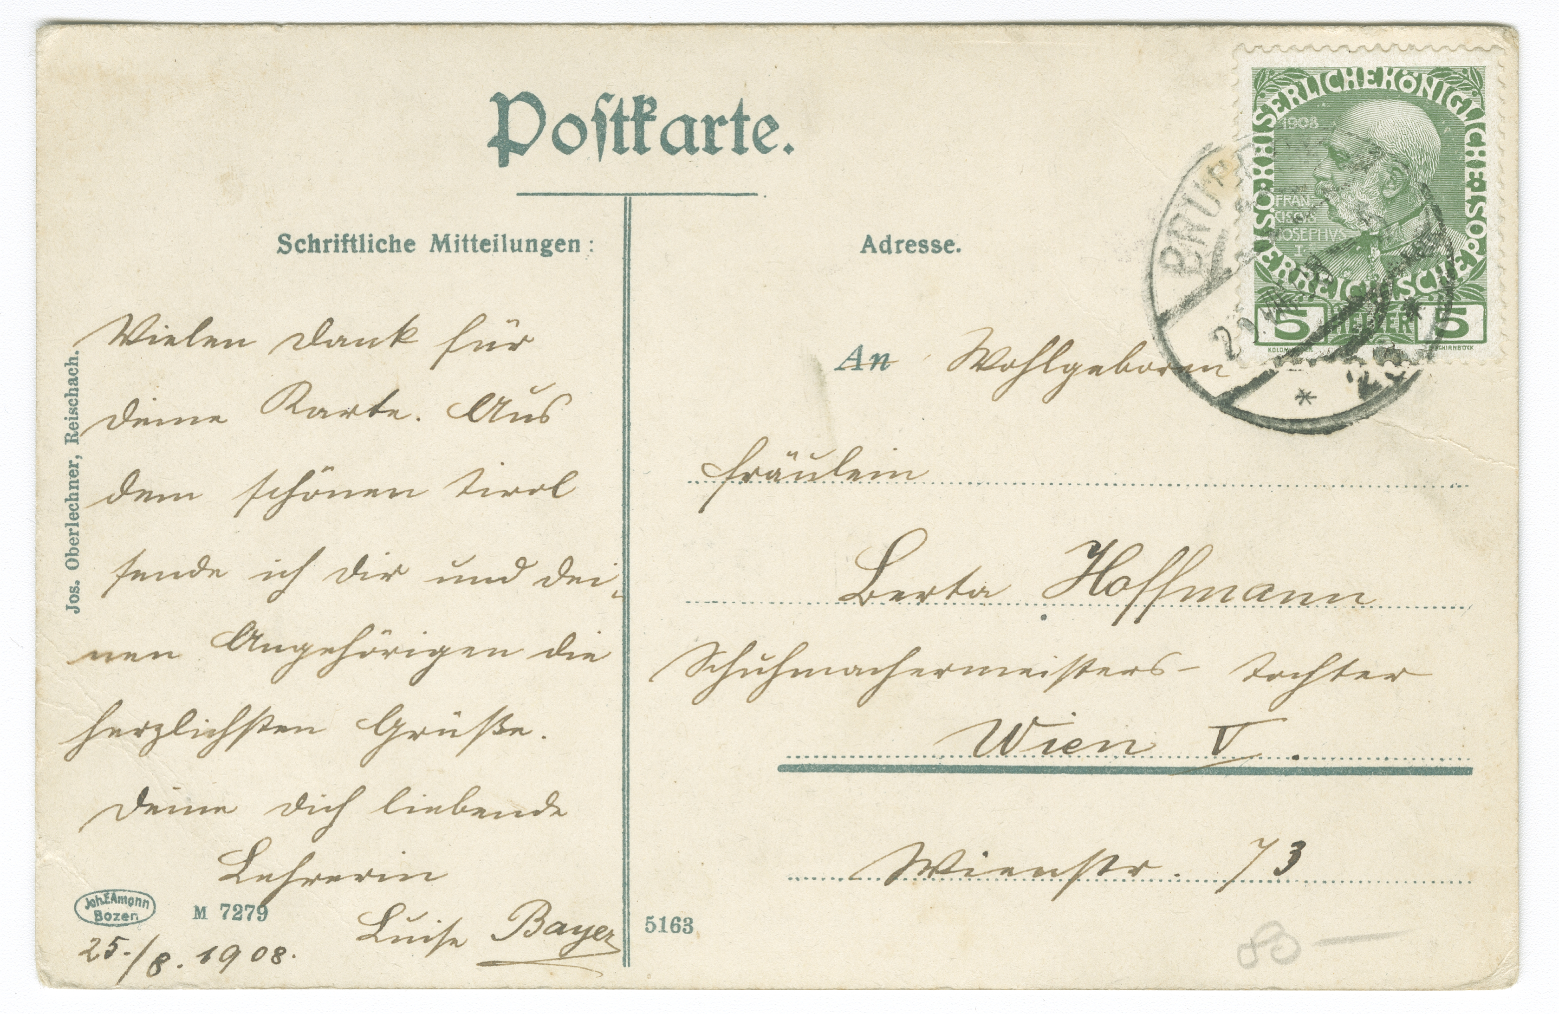 Postkarte.
Schriftliche Mitteilungen:
Vielen Dank für
deine Karte. Aus
dem schönen Tirol
sende ich dir und dei-
nen Angehörigen die
herzlichsten Grüße.
Deine dich liebende
Lehrerin
Luise Bayer
25./8. 1908.
Jos. Oberlechner, Reischach.
Joh. F. Amonn
Bozen
M 7279
5163
Adresse.
An Wohlgeboren
Fräulein
Berta Hoffmann
Schuhmachermeisters- tochter
Wien V.
Wienstr. 73
KAISERLICHE KÖNIGLICHE ÖSTERREICHISCHE POST
1908
FRAN
CISCVS
IOSEPHVS
I
5 HELLER 5
BRUN